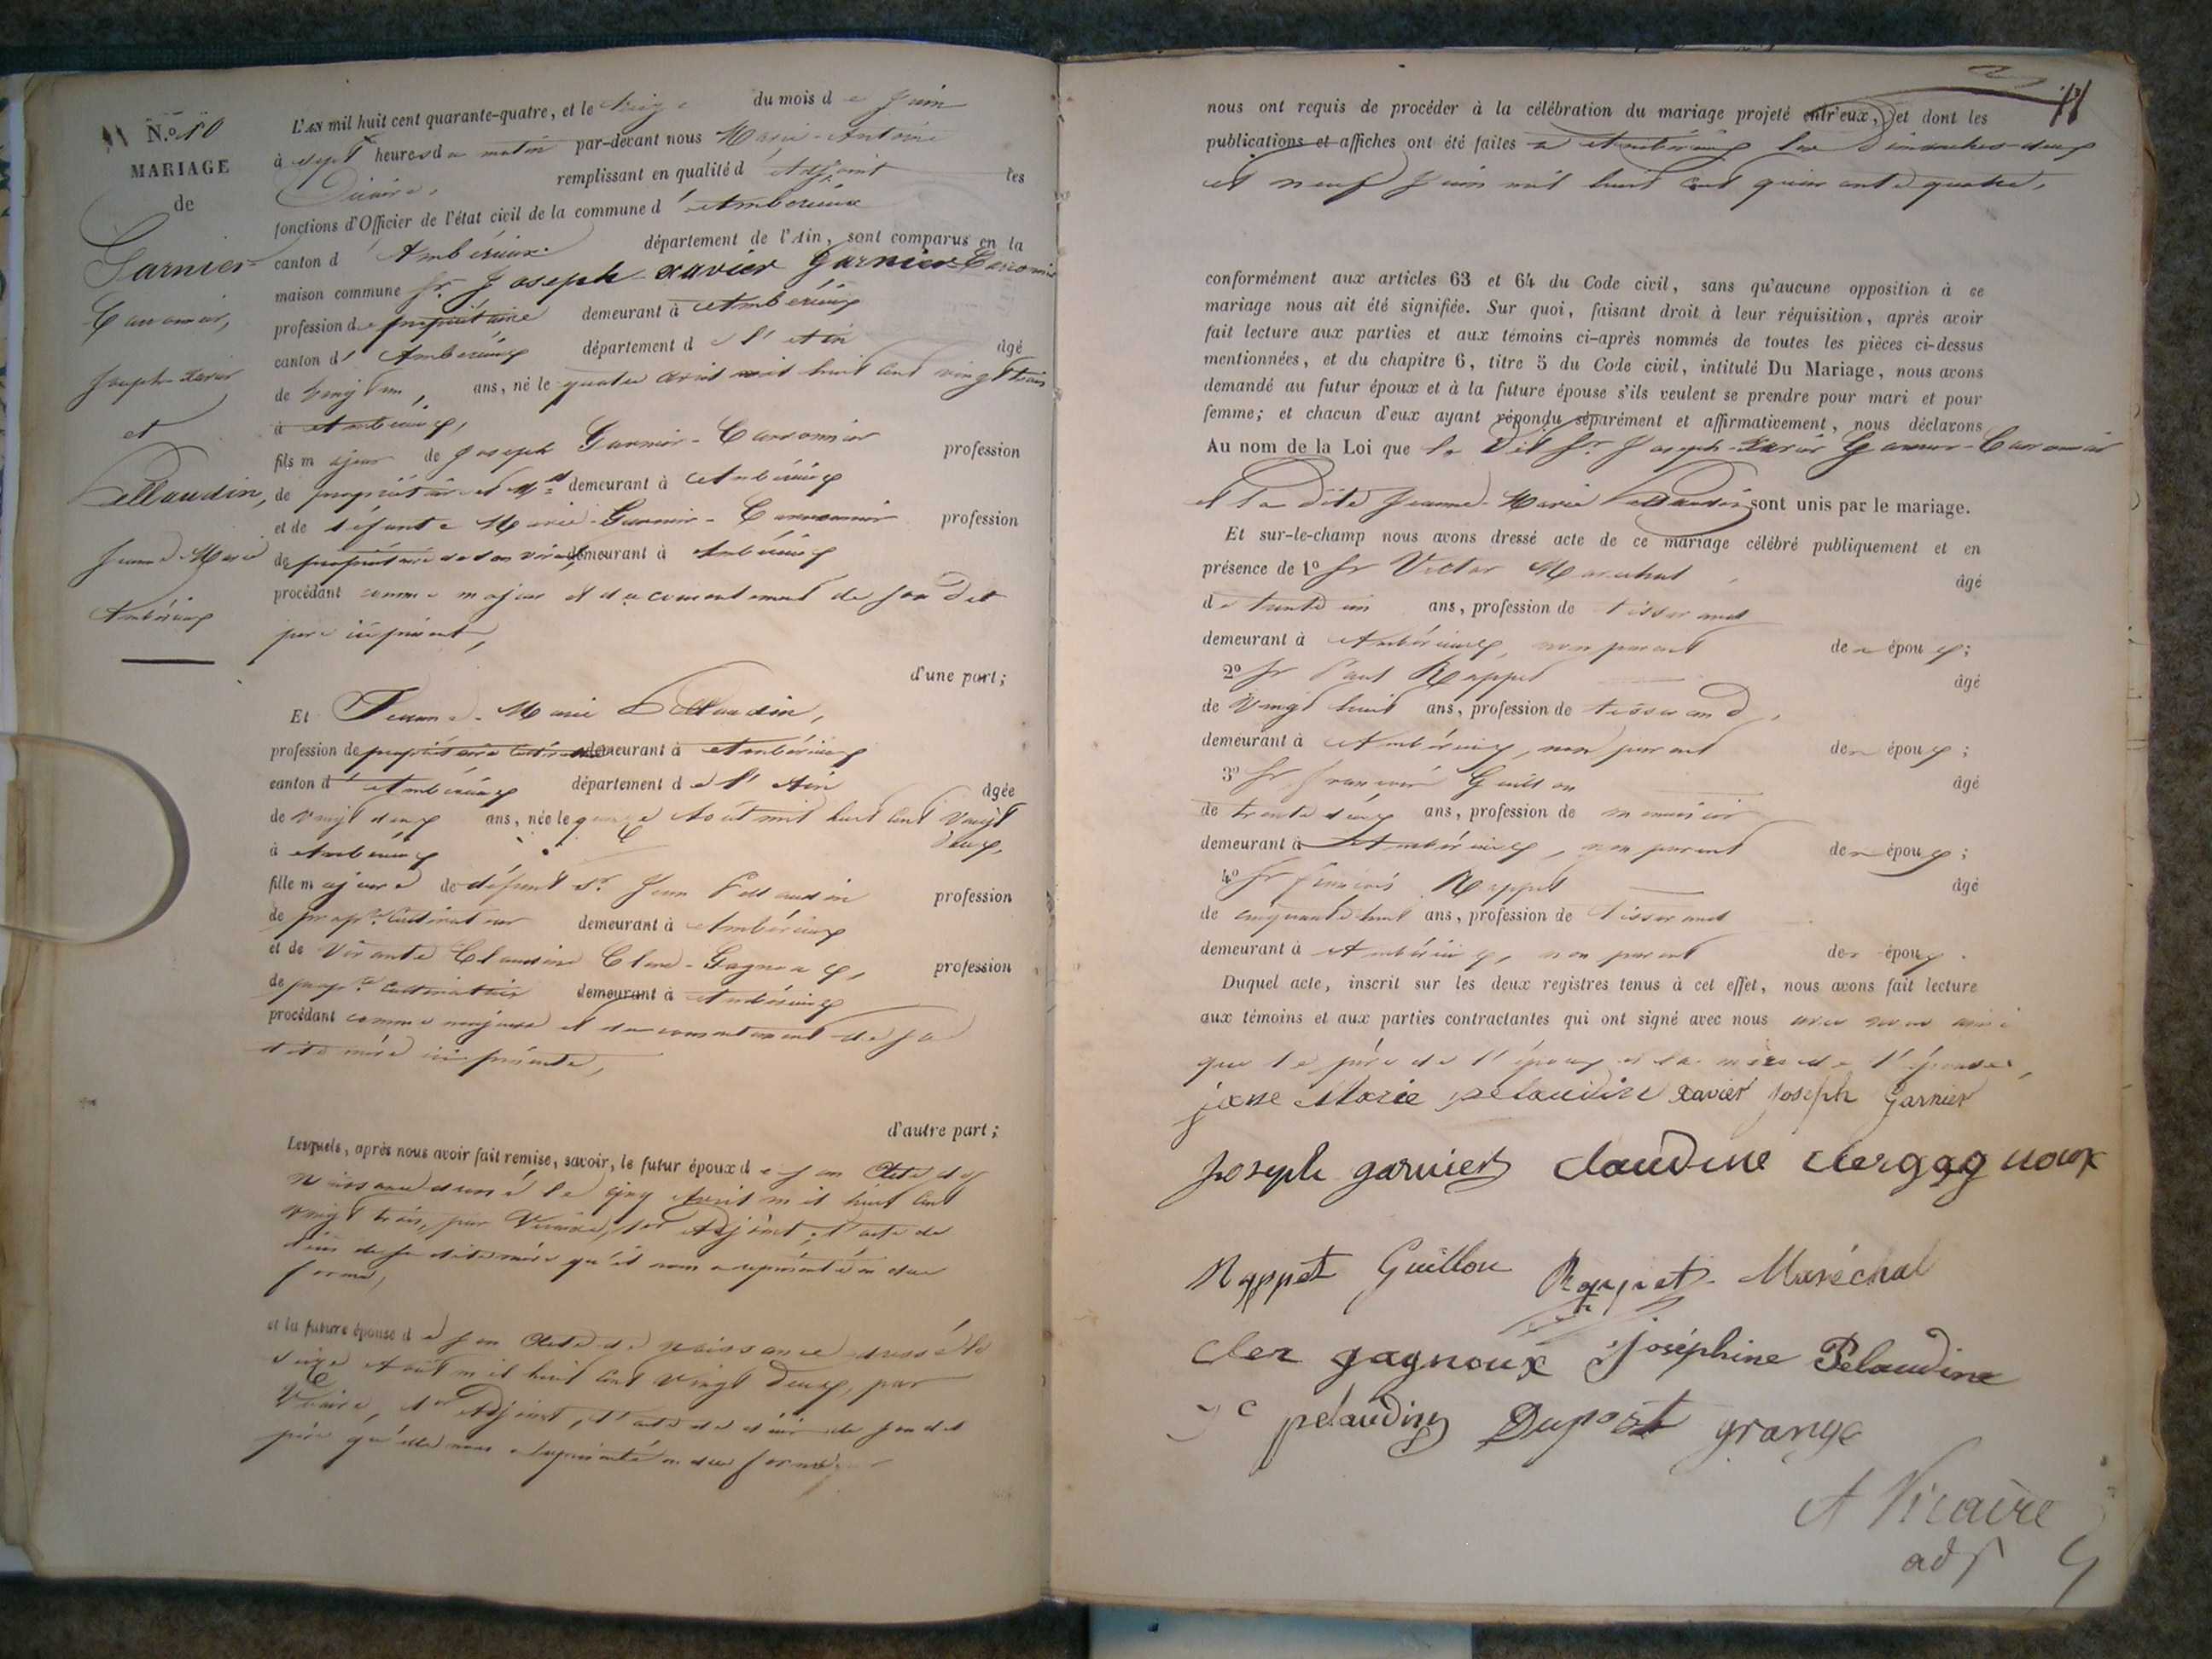 N.º 10
MARIAGE
de
Garnier-
Carromier,
Joseph-Xavier
et
Pellaudin,
Jeanne-Marie
Ambérieux
L'AN mil huit cent quarante-quatre, et le du mois de Juin
à sept heures du matin par-devant nous Marie-Antoine
Vicaire, remplissant en qualité d'Adjoint les
fonctions d'Officier de l'état civil de la commune d'Ambérieux
canton d'Ambérieux département de l'Ain, sont comparus en la
maison commune Sr. Joseph-xavier Garnier-Carromier
profession de propriétaire demeurant à Ambérieux
canton d'Ambérieux département de l'Ain âgé
de vingt un, ans, né le quatre avril mil huit cent vingt trois
à Ambérieux,
fils majeur de Joseph Garnier-Carromier profession
de propriétaire et Md demeurant à Ambérieux
et de défunte Marie Garnier-Carromier profession
de propriétaire de son vivant demeurant à Ambérieux
procédant comme majeur et du consentement de son dit
père ici présent,
d'une part;
Et Jeanne-Marie Pellaudin,
profession de propriétaire demeurant à Ambérieux
canton d'Ambérieux département de l'Ain âgée
de vingt deux ans, née le quinze Août mil huit cent vingt
à Ambérieux deux,
fille majeure de défunt Sr. Jean Pellaudin profession
de propre. Cultivateur demeurant à Ambérieux
et de vivante Claudine Clerc-Gagneux, profession
de propre cultivatrice demeurant à Ambérieux
procédant comme majeure et du consentement de sa
dite mère ici présente,
d'autre part;
Lesquels, après nous avoir fait remise, savoir, le futur époux de son acte de
naissance dressé le cinq Avril mil huit cent
vingt trois, par Vicaire, 1er Adjoint, l'acte de
décès de sa dite mère qu'il nous a représenté en due
forme,
et la future épouse de son acte de naissance dressé le
seize Août mil huit cent vingt deux, par
Vicaire, 1er Adjoint, l'acte de décès de son dit
père qu'elle nous a représenté en due forme,
11
nous ont requis de procéder à la célébration du mariage projeté entr'eux, et dont les
publications et affiches ont été faites à Ambérieux les Dimanches deux
et neuf Juin mil huit cent quarante quatre,
conformément aux articles 63 et 64 du Code civil, sans qu'aucune opposition à ce
mariage nous ait été signifiée. Sur quoi, faisant droit à leur réquisition, après avoir
fait lecture aux parties et aux témoins ci-après nommés de toutes les pièces ci-dessus
mentionnées, et du chapitre 6, titre 5 du Code civil, intitulé Du Mariage, nous avons
demandé au futur époux et à la future épouse s'ils veulent se prendre pour mari et pour
femme; et chacun d'eux ayant répondu séparément et affirmativement, nous déclarons
Au nom de la Loi que le dit Sr. Joseph-Xavier Garnier-Carromier
et la dite Jeanne-Marie Pellaudin sont unis par le mariage.
Et sur-le-champ nous avons dressé acte de ce mariage célébré publiquement et en
présence de 1º Sr Victor Maréchal, âgé
de trente un ans, profession de tisserand
demeurant à Ambérieux, non parent des époux;
2º Sr Paul Rappet âgé
de vingt huit ans, profession de tisserand,
demeurant à Ambérieux, non parent des époux;
3º Sr François Guillon âgé
de trente deux ans, profession de menuisier
demeurant à Ambérieux, non parent des époux;
4º Sr François Rappet âgé
de cinquante huit ans, profession de tisserand
demeurant à Ambérieux, non parent des époux.
Duquel acte, inscrit sur les deux registres tenus à cet effet, nous avons fait lecture
aux témoins et aux parties contractantes qui ont signé avec nous avec nous ainsi
que le père de l'époux et la mère de l'épouse,
jane Marie pelaudin xavier joseph Garnier
joseph garnier claudine clergagnoux
Rappet Guillon Rappet Maréchal
cler gagnoux joséphine Pelaudine
pélaudin Dupost grange
A Vicaire
adj